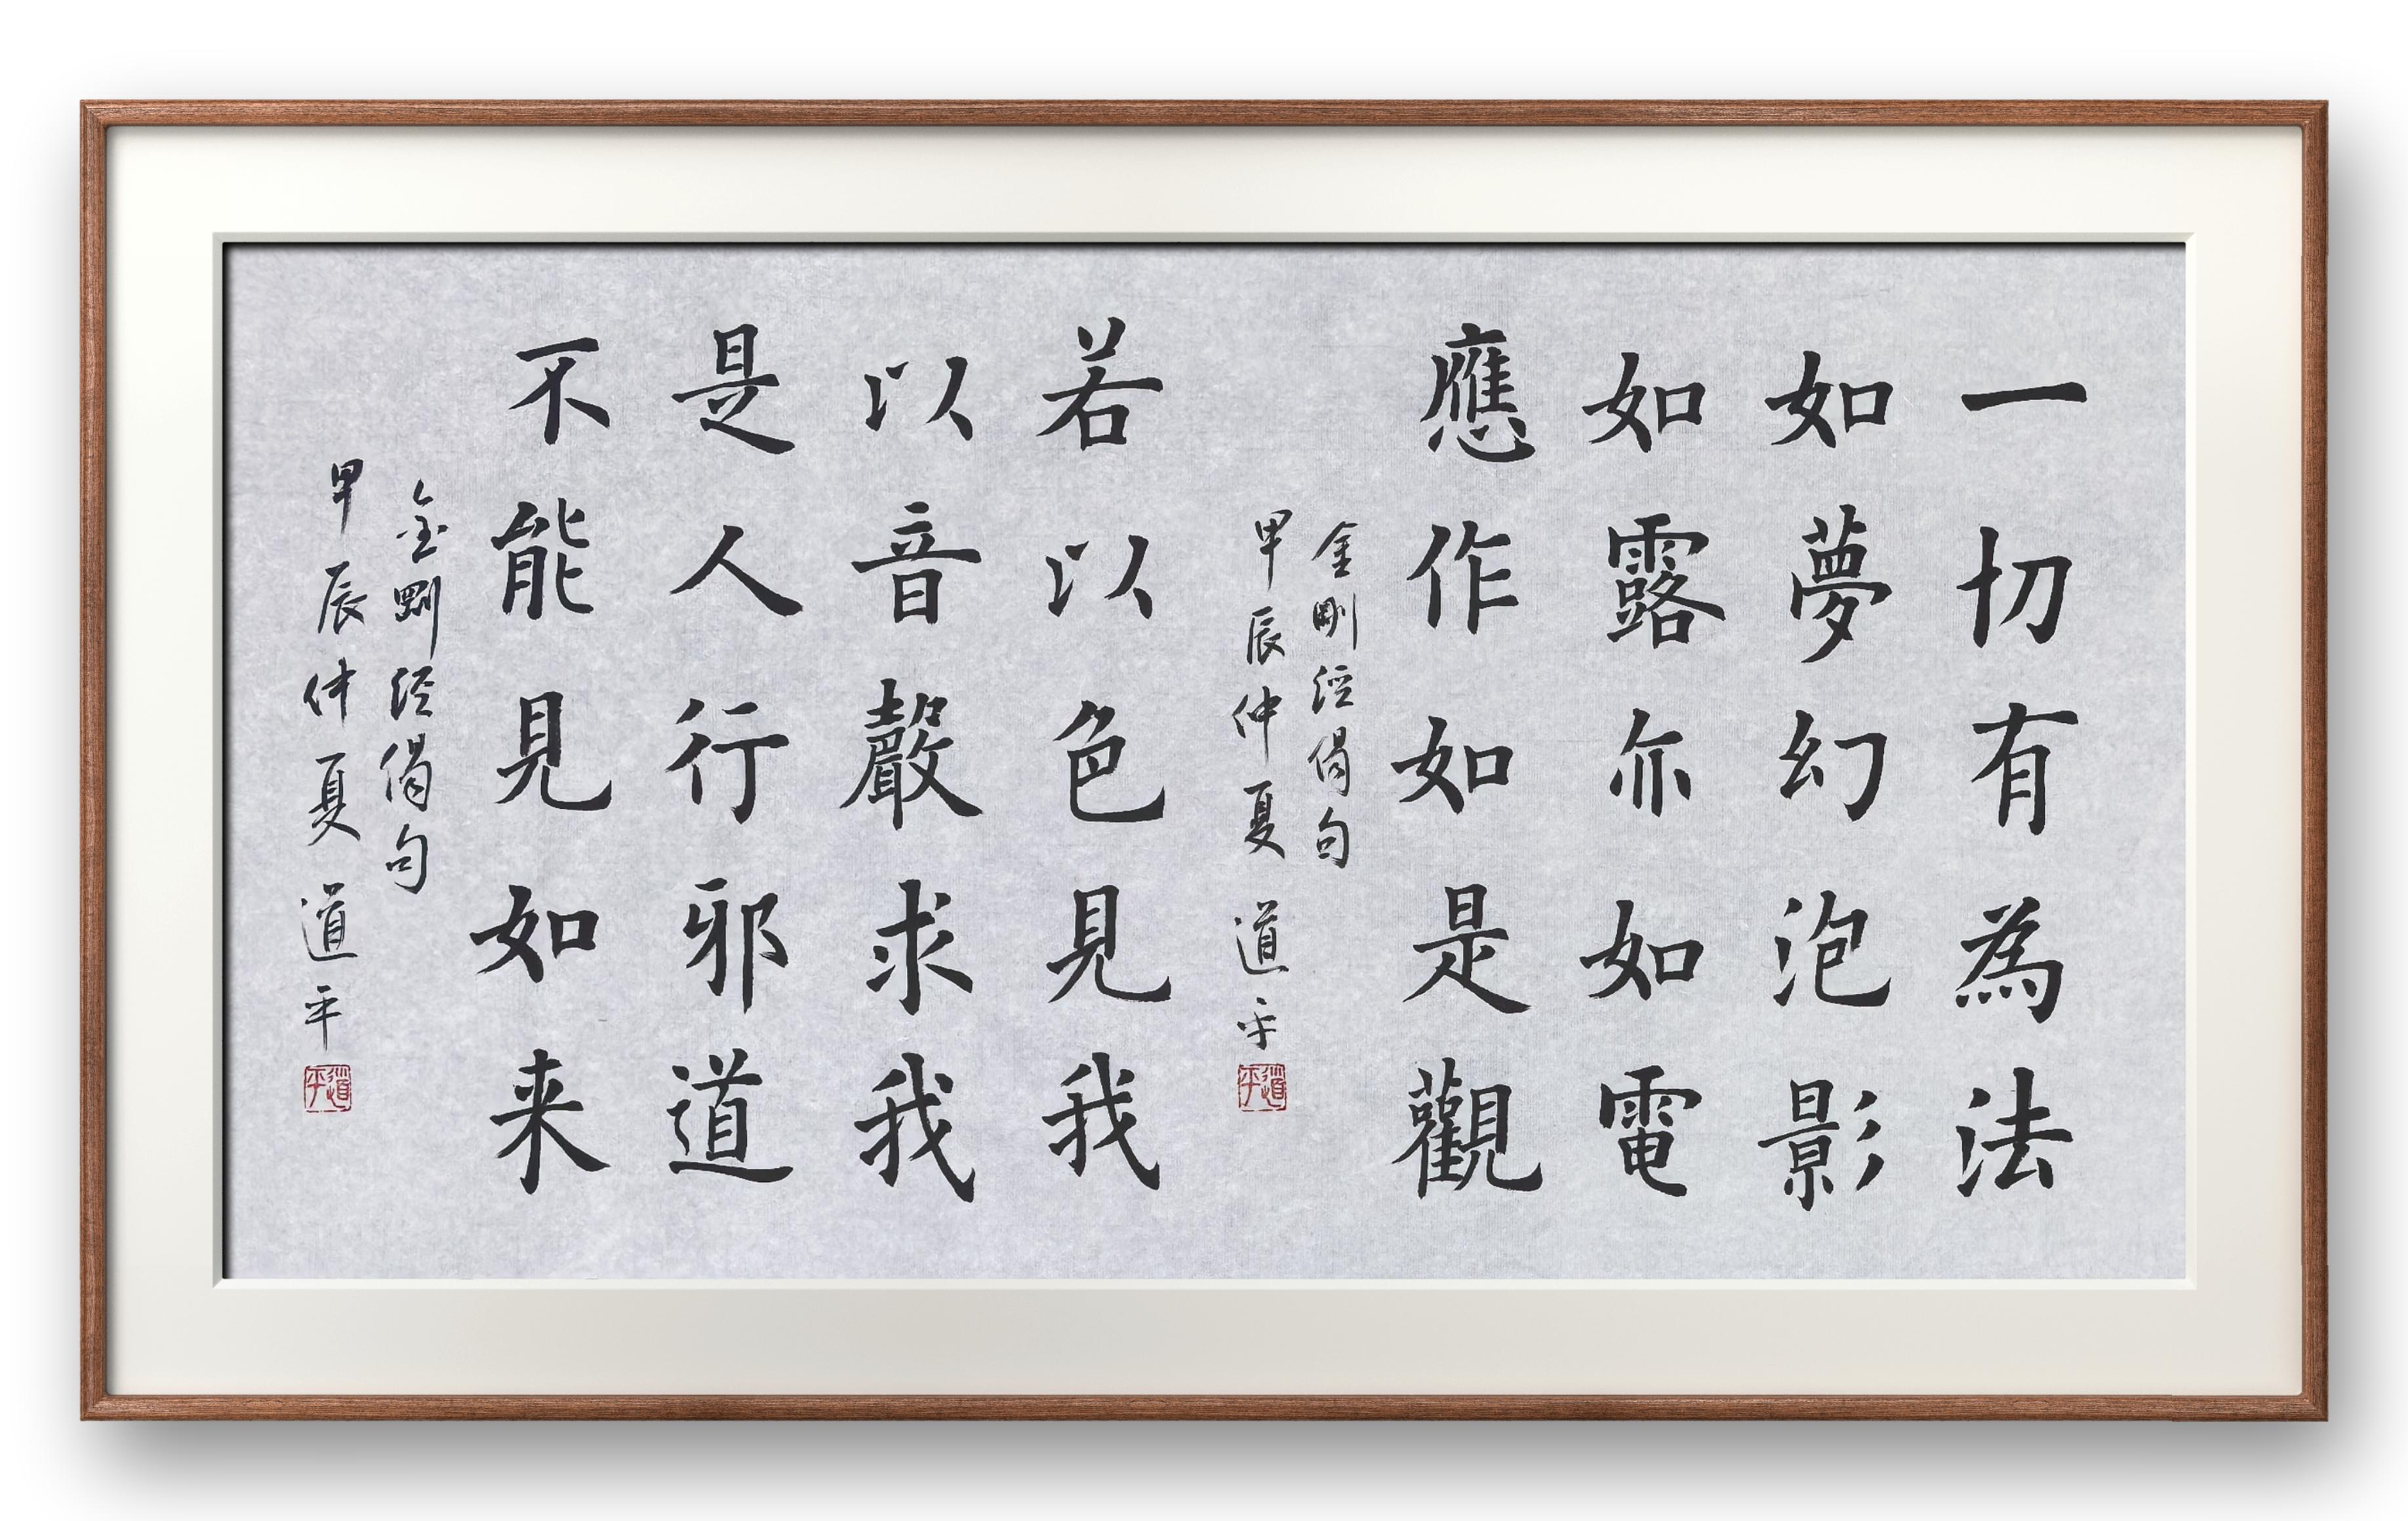 一切有為法
如夢幻泡影
如露亦如電
應作如是觀
金剛經偈句
甲辰仲夏 道平
道平
若以色見我
以音聲求我
是人行邪道
不能見如来
金剛經偈句
甲辰仲夏 道平
道平